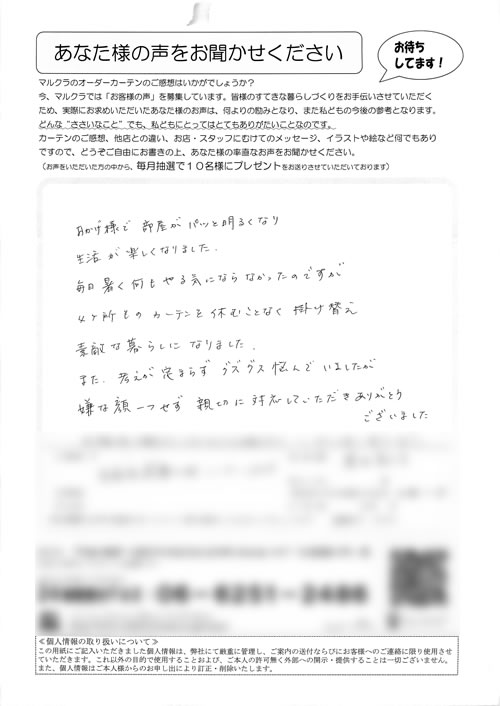 あなた様の声をお聞かせください
お待ち
してます!
マルクラのオーダーカーテンのご感想はいかがでしょうか?
今、マルクラでは「お客様の声」を募集しています。皆様のすてきな暮らしづくりをお手伝いさせていただく
ため、実際にお求めいただいたあなた様のお声は、何よりの励みとなり、また私どもの今後の参考となります。
どんな“ささいなこと”でも、私どもにとってはとてもありがたいことなのです。
カーテンのご感想、他店との違い、お店・スタッフにむけてのメッセージ、イラストや絵など何でもあり
ですので、どうぞご自由にお書きの上、あなた様の率直なお声をお聞かせください。
(お声をいただいた方の中から、毎月抽選で10名様にプレゼントをお送りさせていただいております)
お陰様で 部屋がパッと明るくなり
生活が楽しくなりました.
毎日暑く何もやる気にならなかったのですが
4ヶ所ものカーテンを休むことなく掛け替え
素敵な暮らしになりました.
また. 考えが定まらず グズグズ悩んでいましたが
嫌な顔一つせず 親切に対応していただきありがとう
ございました
06-6251-2486
≪個人情報の取り扱いについて≫
この用紙にご記入いただきました個人情報は、弊社にて厳重に管理し、ご案内の送付ならびにお客様へのご連絡に限り使用させ
ていただきます。これ以外の目的で使用することおよび、ご本人の許可無く外部への開示・提供することは一切ございません。
また、個人情報はご本人様からのお申し出により訂正・削除いたします。